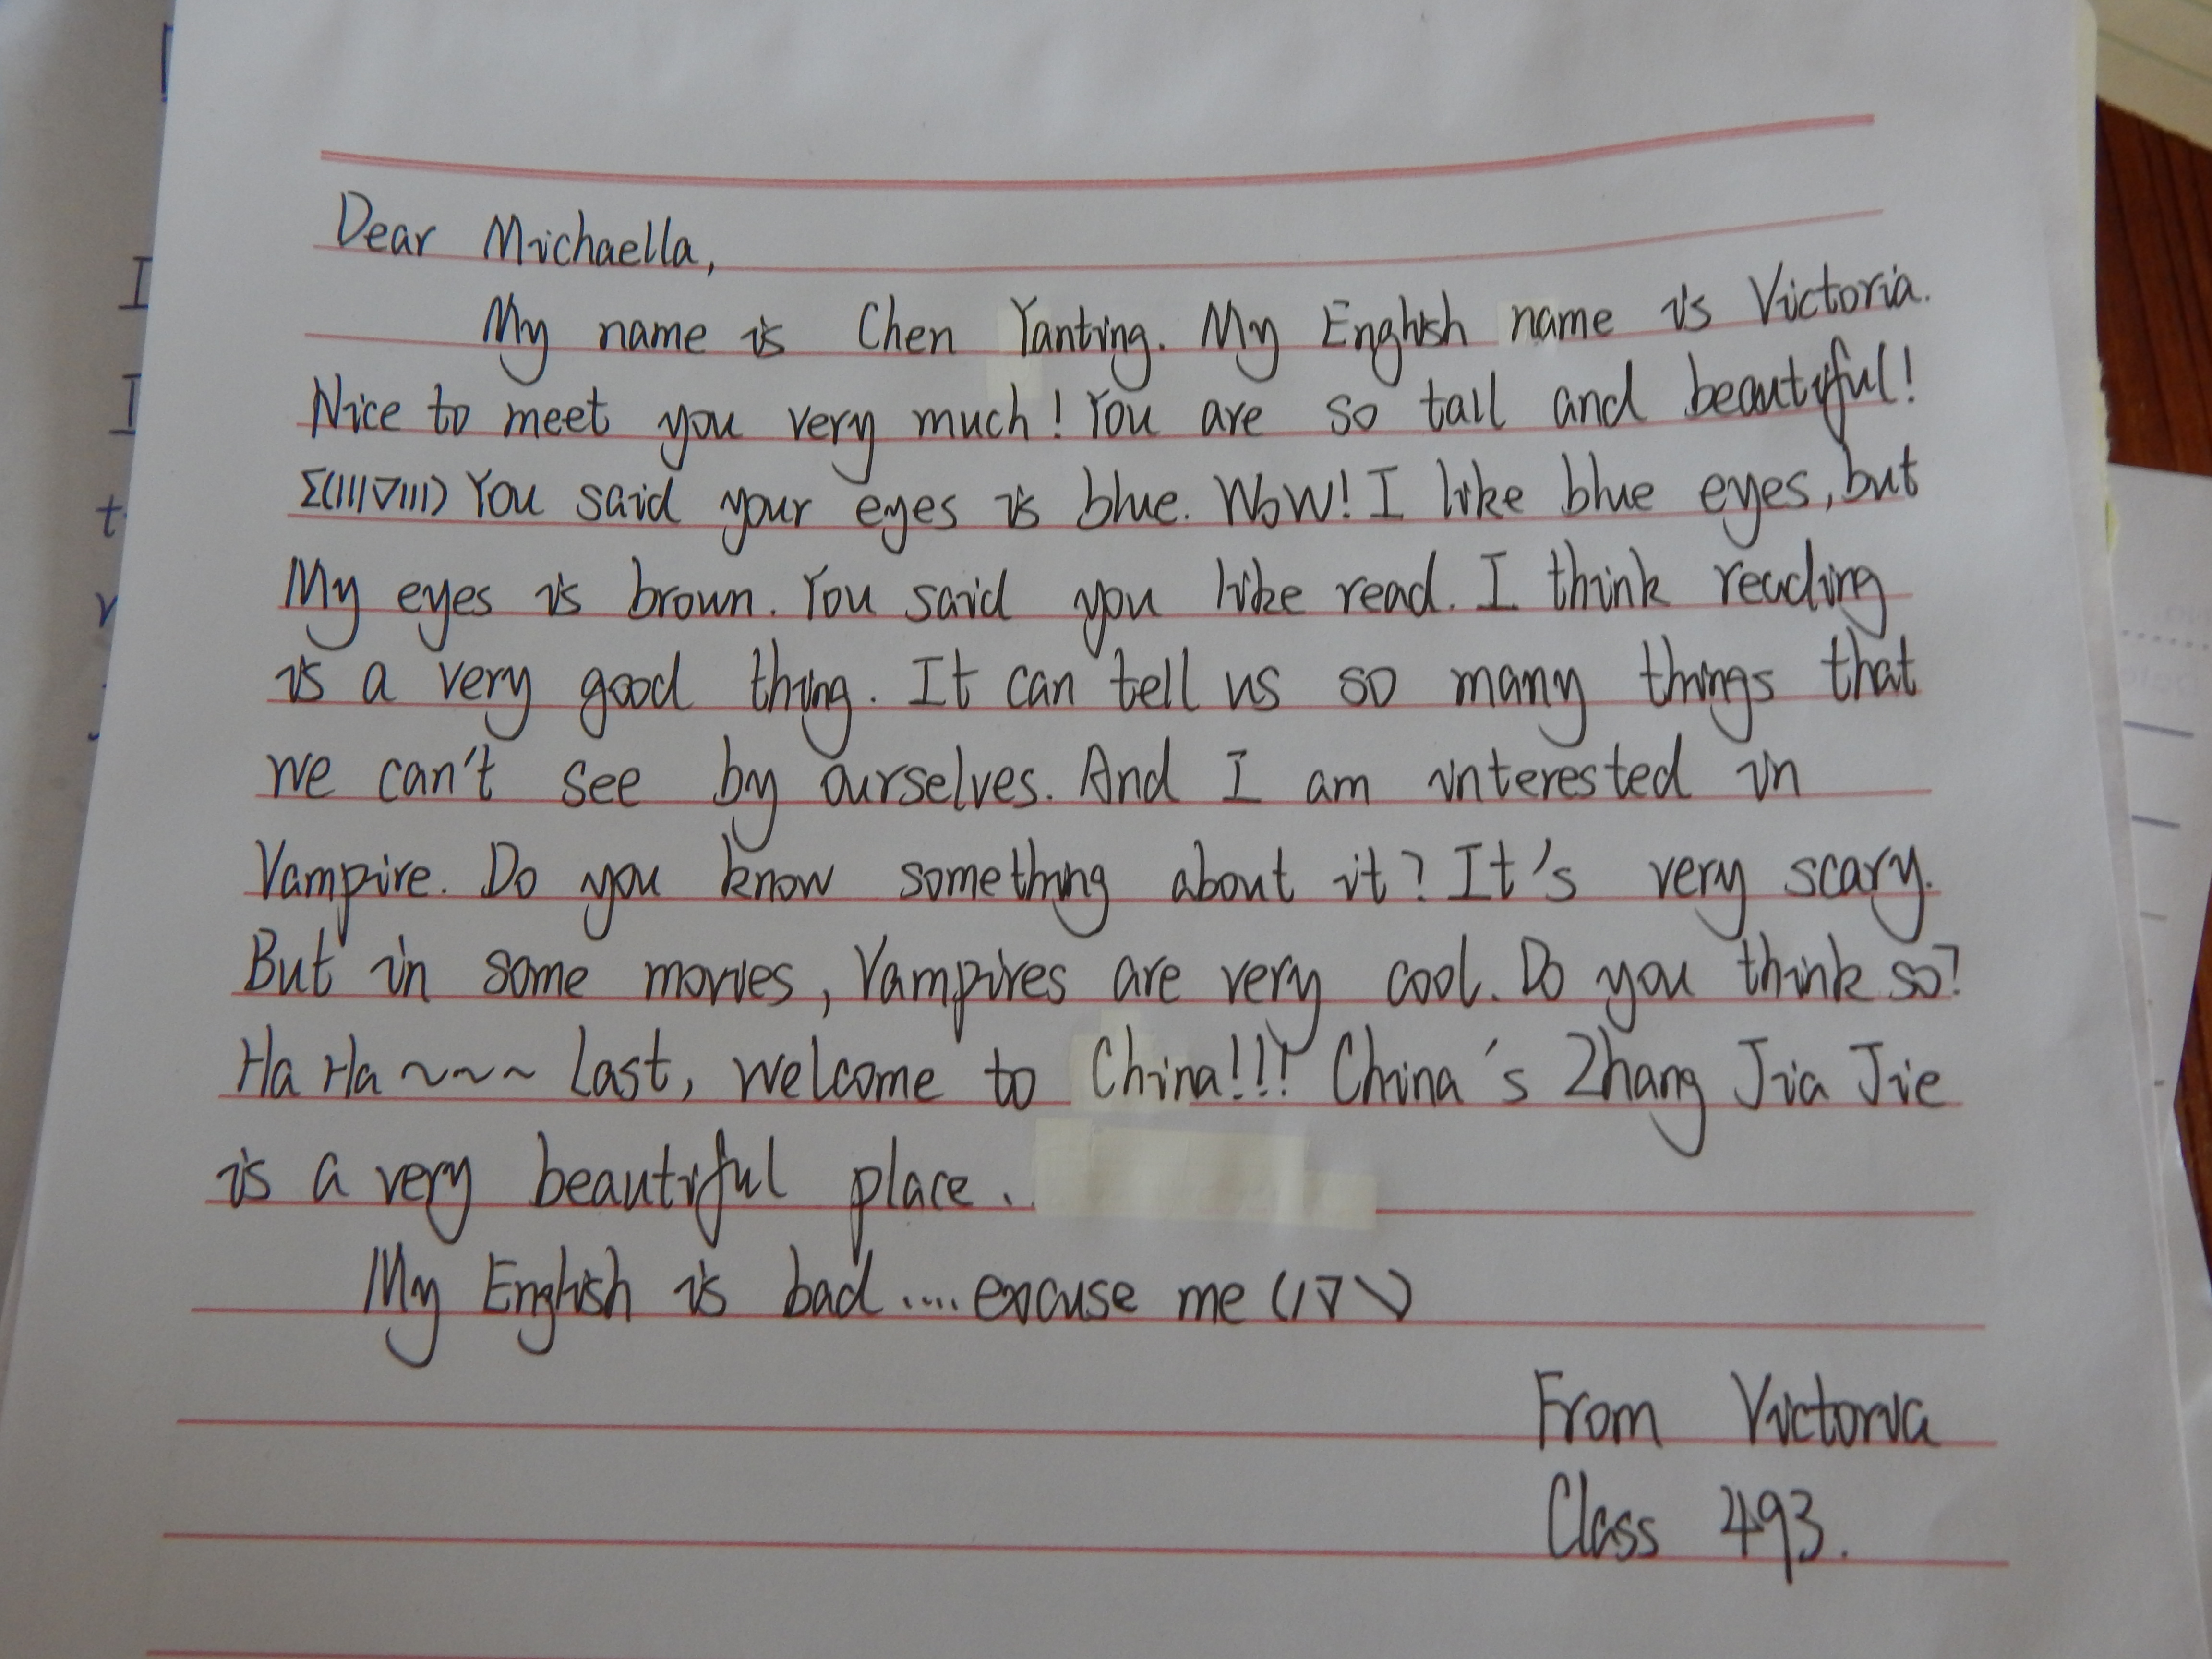 Dear Michaella,
My name is Chen Yanting. My English name is Victoria.
Nice to meet you very much! You are so tall and beautiful!
Σ(|||▽|||) You said your eyes is blue. WoW! I like blue eyes, but
My eyes is brown. You said you like read. I think reading
is a very good thing. It can tell us so many things that
we can't see by ourselves. And I am interested in
Vampire. Do you know something about it? It's very scary.
But in some movies, Vampires are very cool. Do you think so?
Ha Ha ~~~ Last, welcome to China!!! China's Zhang Jia Jie
is a very beautiful place.
My English is bad.... excuse me (/▽\)
From Victoria
Class 493.